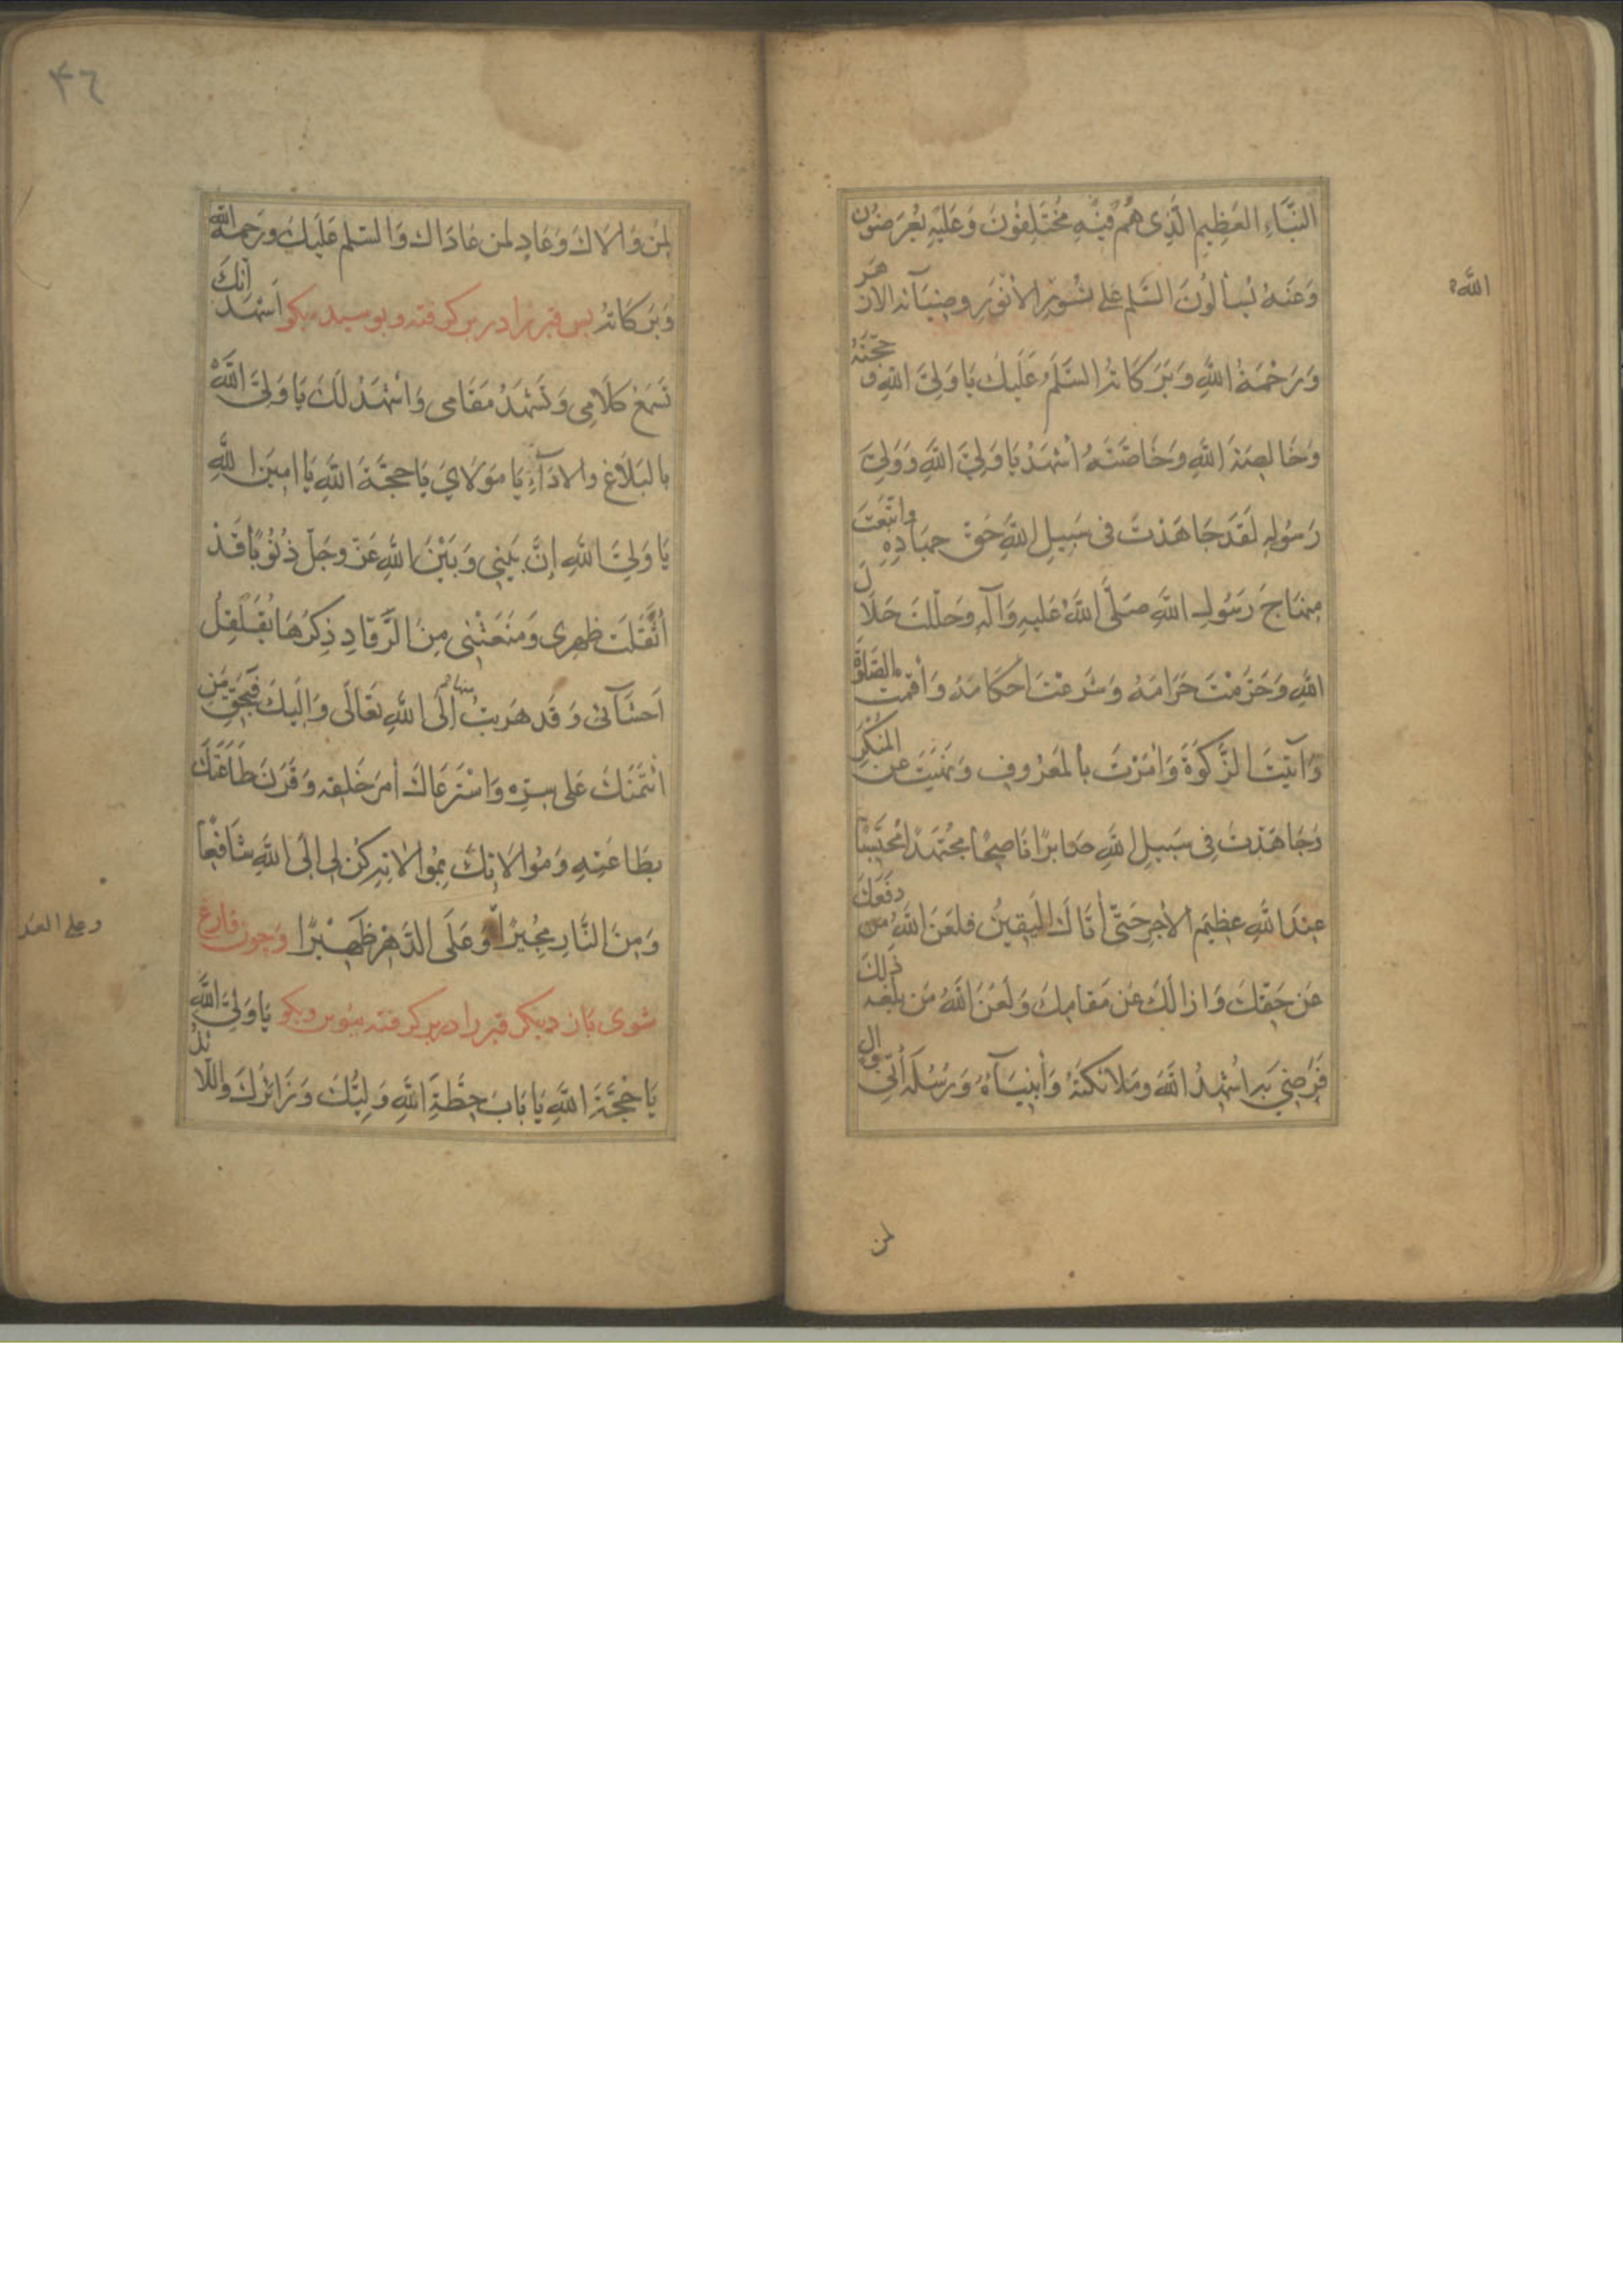 النَّبَاءِ العَظِيمِ الَّذِى هُمْ فِيْهِ مُخْتَلِفُوْنَ وَعَلَيْهِ يُعْرَضُوْن
وَعَنْهُ يُسْأَلُوْنَ السَّلٰم عَلٰى نُوْرِ الْاَنْوَرِ وضِيَآئه الازهر
اللّٰه
وَرَحْمَةُ اللّٰهِ وَبَرَكَاتهُ السَّلٰمُ عَلَيْكَ يَا وَلِيَّ اللّٰهِ و حجّتَهُ
وَخَالِصَةَ اللّٰهِ وَخَاصَّتَهُ اَشْهَدُ يَا وَلِيَّ اللّٰهِ وَوَلِيَّ
رَسُولِهِ لَقَدْ جَاهَدْتَ فى سَبِيلِ اللّٰهِ حَقَّ جِهَادِهِ وَاتَّبَعْتَ
مِنْهَاجَ رَسُولِ اللّٰهِ صَلَّى اللّٰهُ عَلَيهِ وَآلِهِ وَحَلَّلْتَ حَلَالَ
اللّٰهِ وَحَرَّمْتَ حَرَامَهُ وَشَرعْتَ احكَامَهُ وَأقمت الصَّلٰوةَ
وَآتَيْتَ الزَّكٰوةَ وَاَمَرْتَ بِالْمَعْرُوفِ وَنَهَيْتَ عَنِ المُنْكَرِ
وَجَاهَدْتَ فِى سَبِيلِ اللّٰهِ صَابِرًا نَاصِحًا مُجْتَهِدًا مُحْتَسِبًا
عِنْدَ اللّٰهِ عَظِيمَ الْاَجْرِ حَتّٰى أتَاكَ الْيَقِينُ فَلَعَنَ اللّٰهُ مَن دَفَعَكَ
عَنْ حَقِّكَ وَازالَكَ عَنْ مَقَامِكَ وَلَعَنَ اللّٰهُ مَن بَلَغَهُ ذٰلِكَ
فَرَضِيَ بِهِ اُشْهِدُ اللّٰهَ وَمَلَائكَتَهُ وَأنْبِيَآءَهُ وَرُسُلَهُ أَنّى وال
لمن
٤٦
لِمَنْ وَالَاكَ وَعَادٍ لمن عَادَاكَ وَالسَّلٰم عَلَيْكَ وَرَحمة اللّٰه
وَبَرَكَاتهُ پس قبر را در بر گرفته و ببوسيد و بگو اَشْهَدُ اَنَّكَ
تَسْمَعُ كَلَامِى وَتَشْهَدُ مَقَامى وَاَشْهَدُ لَكَ يَا وَلِيَّ اللّٰهِ
بِالْبَلَاغِ والادَآءِ يَا مَوْلَايَ يَا حُجَّةَ اللّٰهِ يَا اَمِينَ اللّٰهِ
يَا وَلِيَّ اللّٰهِ اِنَّ بَيْنِي وَبَيْنَ اللّٰهِ عَزَّ وجَلّ ذُنُوْبًا قَدْ
اَثْقَلَتْ ظَهْرِى وَمَنَعَتْنِى مِنَ الرُّقَادِ ذِكْرُهَا يُقَلْقِلُ
اَحْشَآئى وَقَدْ هَرَبْتُ منها اِلَى اللّٰهِ تَعَالٰى وَاِلَيْكَ فَبِحَقِّ مَنِ
ائْتَمَنَكَ عَلٰى سِرِّهِ وَاسْتَرعَاكَ اَمْرَ خَلْقِهِ وَقَرَنَ طَاعَتَكَ
بِطَاعَتِهِ وَمُوَالَاتِكَ بِمُوَالَاتِهِ كُنْ لِى اِلَى اللّٰهِ شَافِعًا
وَمِنَ النَّارِ مُجِيْرًا وَّعَلَى الدَّهْرِ ظَهِيْرًا وَچون فارغ
وعلى العد
شوى باز ديگر قبر را در بر گرفته ببوس و بگو يَا وَلِيَّ اللّٰهِ
يَا حُجَّةَ اللّٰهِ يَا بَابَ حِطَّةِ اللّٰهِ وَلِيُّكَ وَزَائِرُكَ وَاللَّائذُ